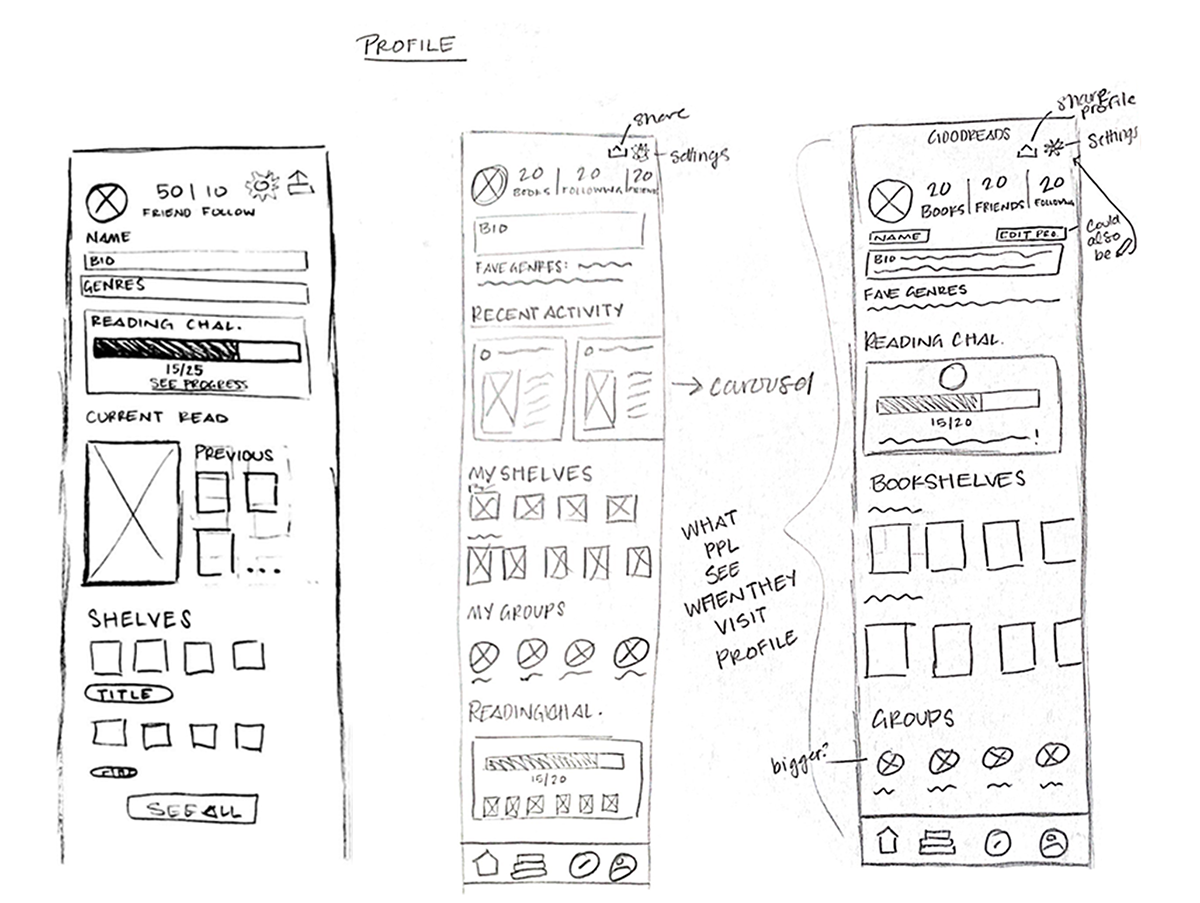 PROFILE
50 | 10
FRIEND FOLLOW
NAME
BIO
GENRES
READING CHAL.
15/25
SEE PROGRESS
CURRENT READ
PREVIOUS
...
SHELVES
TITLE
SEE ALL
share
settings
20 | 20 | 20
BOOKS FOLLOWING FRIENDS
BIO
FAVE GENRES:
RECENT ACTIVITY
→ carousel
MY SHELVES
MY GROUPS
READING CHAL.
15/20
WHAT
PPL
SEE
WHEN THEY
VISIT
PROFILE
share profile
GOODREADS
settings
20 | 20 | 20
BOOKS FRIENDS FOLLOWING
NAME
EDIT PRO.
could
also
be
BIO
FAVE GENRES
READING CHAL.
15/20
!
BOOKSHELVES
GROUPS
bigger?